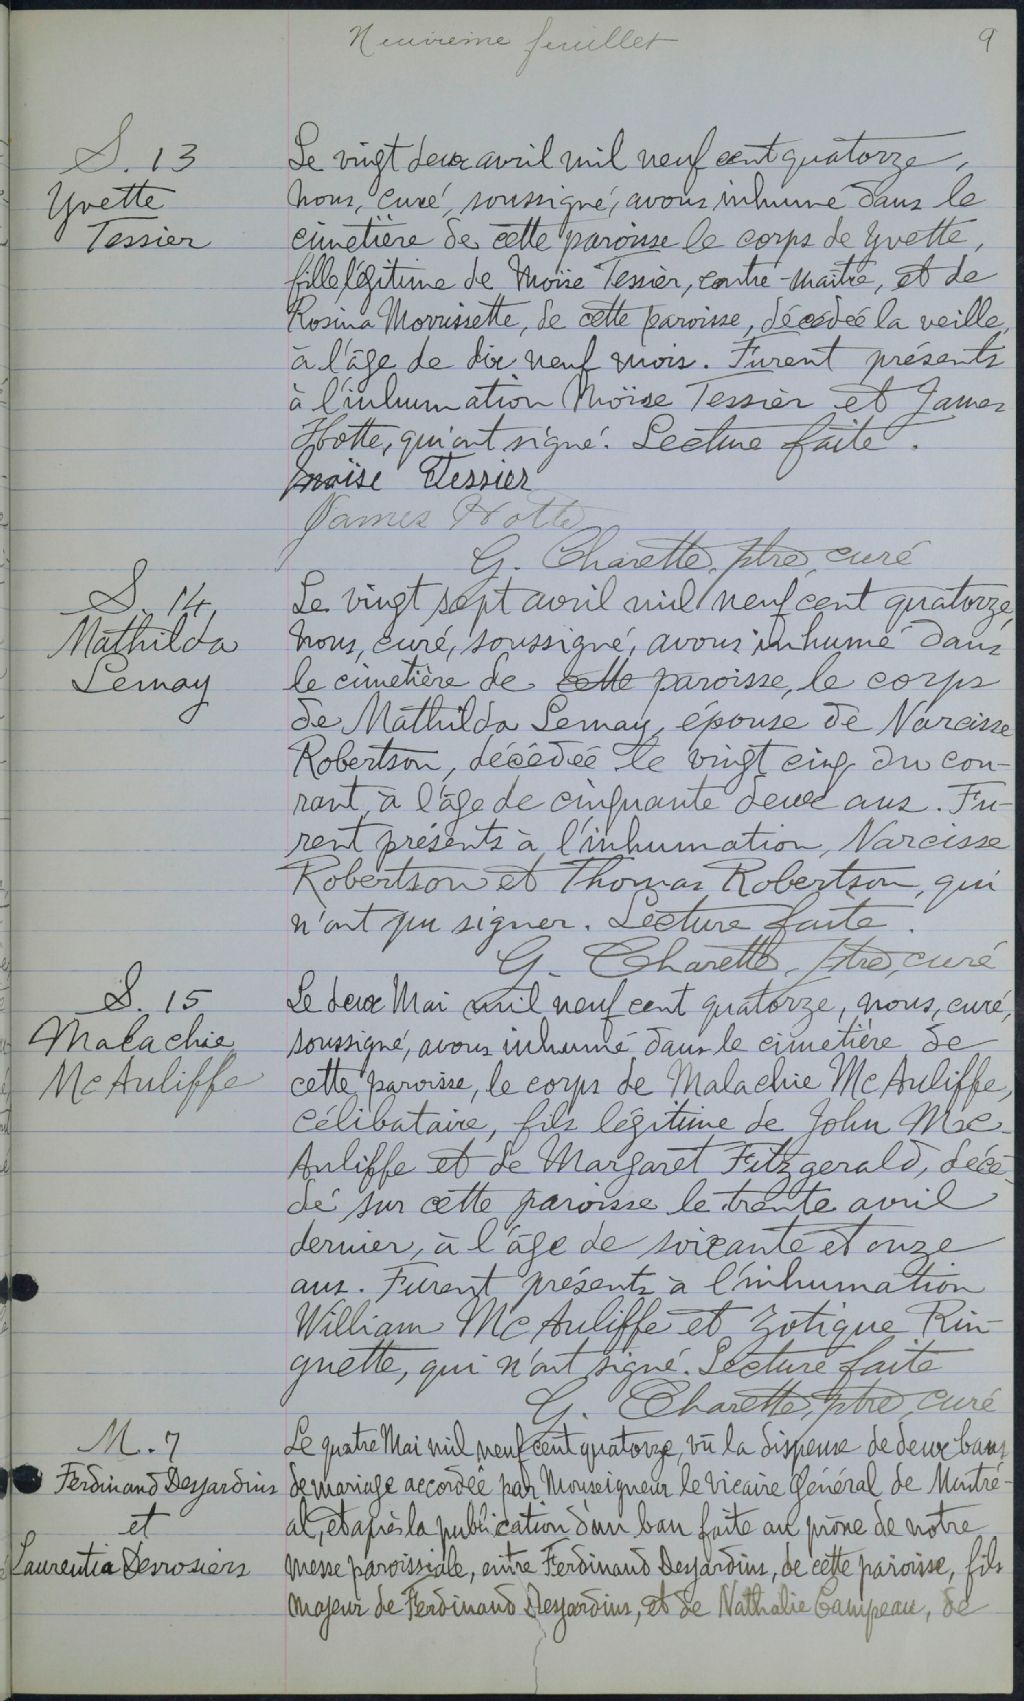 Neuvième feuillet
9
S. 13
Yvette
Tessier
Le vingt deux avril mil neuf cent quatorze,
nous, curé, soussigné, avons inhumé dans le
cimetière de cette paroisse le corps de Yvette,
fille légitime de Moïse Tessier, contre-maître, et de
Rosina Morrissette, de cette paroisse, décédée la veille,
à l'âge de dix neuf mois. Furent présents
à l'inhumation Moïse Tessier et James
Hotte, qui ont signé. Lecture faite.
Moïse Tessier
James Hotte
G. Charette, ptre, curé
S. 14,
Mathilda
Lemay
Le vingt sept avril mil neuf cent quatorze,
nous, curé, soussigné, avons inhumé dans
le cimetière de cette paroisse, le corps
de Mathilda Lemay, épouse de Narcisse
Robertson, décédée le vingt cinq du cou-
rant, à l'âge de cinquante deux ans. Fu-
rent présents à l'inhumation, Narcisse
Robertson et Thomas Robertson, qui
n'ont pu signer. Lecture faite.
G. Charette, ptre, curé
S. 15
Malachie
McAuliffe
Le deux Mai mil neuf cent quatorze, nous, curé,
soussigné, avons inhumé dans le cimetière de
cette paroisse, le corps de Malachie McAuliffe,
célibataire, fils légitime de John Mc-
Auliffe et de Margaret Fitzgerald, décé-
dé sur cette paroisse le trente avril
dernier, à l'âge de soixante et onze
ans. Furent présents à l'inhumation
William McAuliffe et Zotique Rin-
guette, qui n'ont signé. Lecture faite
G. Charette, ptre, curé
M. 7
Ferdinand Desjardins
et
Laurentia Desrosiers
Le quatre Mai mil neuf cent quatorze, vu la dispense de deux bans
de mariage accordée par Monseigneur le Vicaire Général de Montré-
al, et après la publication d'un ban faite au prône de notre
messe paroissiale, entre Ferdinand Desjardins, de cette paroisse, fils
majeur de Ferdinand Desjardins, et de Nathalie Campeau, de